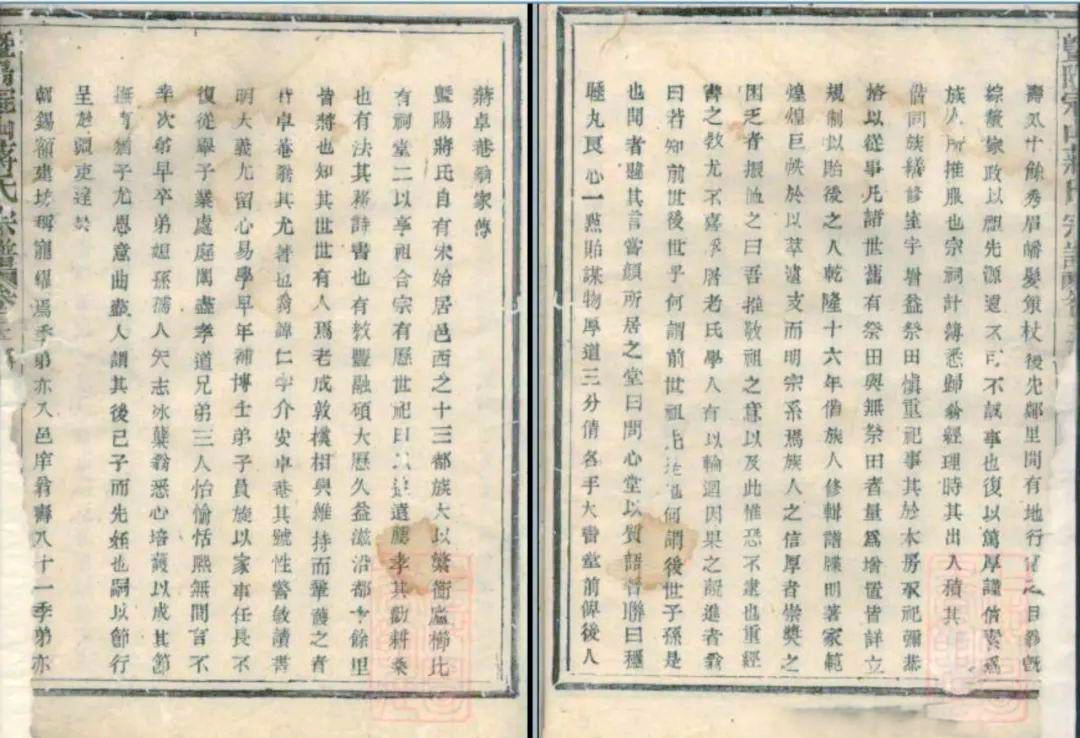 蔣卓菴翁家傳
暨陽蔣氏自有宋始居邑西之十三都族大以繁衡廬櫛比
有祠堂二以享祖合宗有歷世祀田以追遠薦孝其勸耕桑
也有法其務詩書也有教豐融碩大歷久益滋沿都十餘里
皆蔣也知其世世有人焉老成敦樸相與維持而鞏護之者
卓菴翁其尤著也翁諱仁字介安卓菴其號性警敏讀書
明大義尤留心易學早年補博士弟子員旋以家事任長不
復從舉子業處庭闈盡孝道兄弟三人怡愉恬熙無間言不
幸次弟早卒弟媳孫孺人矢志冰蘗翁悉心培護以成其節
撫育猶子尤恩意曲盡人謂其後己子而先姪也嗣以節行
呈於疆吏達於
朝錫額建坊稱寵耀焉季弟亦入邑庠翁壽八十一季弟亦
暨陽 山蔣氏宗譜
暨陽 山蔣氏宗譜
壽八十餘秀眉皤髮策杖後先鄰里間有地行仙之目翁既
綜釐家政以慰先源遠不可不誠事也復以篤厚謹信素爲
族人所推服也宗祠計簿悉歸翁經理時其出入積其
偕同族繕修室宇增益祭田愼重祀事其於本房承祀彌恭
恪以從事凡諸世舊有祭田與無祭田者量爲增置皆詳立
規制以貽後之人乾隆十六年偕族人修輯譜牒明著家範
煌煌巨帙於以萃遠支而明宗系焉族人之信厚者崇獎之
困乏者振恤之曰吾推敬祖之意以及此惟恐不逮也重經
書之敎尤不喜浮屠老氏學人有以輪迴因果之說進者翁
曰若知前世後世乎何謂前世祖 是也何謂後世子孫是
也聞者韙其言嘗顏所居之堂曰問心堂以質語書聯曰穩
睡丸艮心一點貽謀物厚道三分倩各手大書堂前俾後人